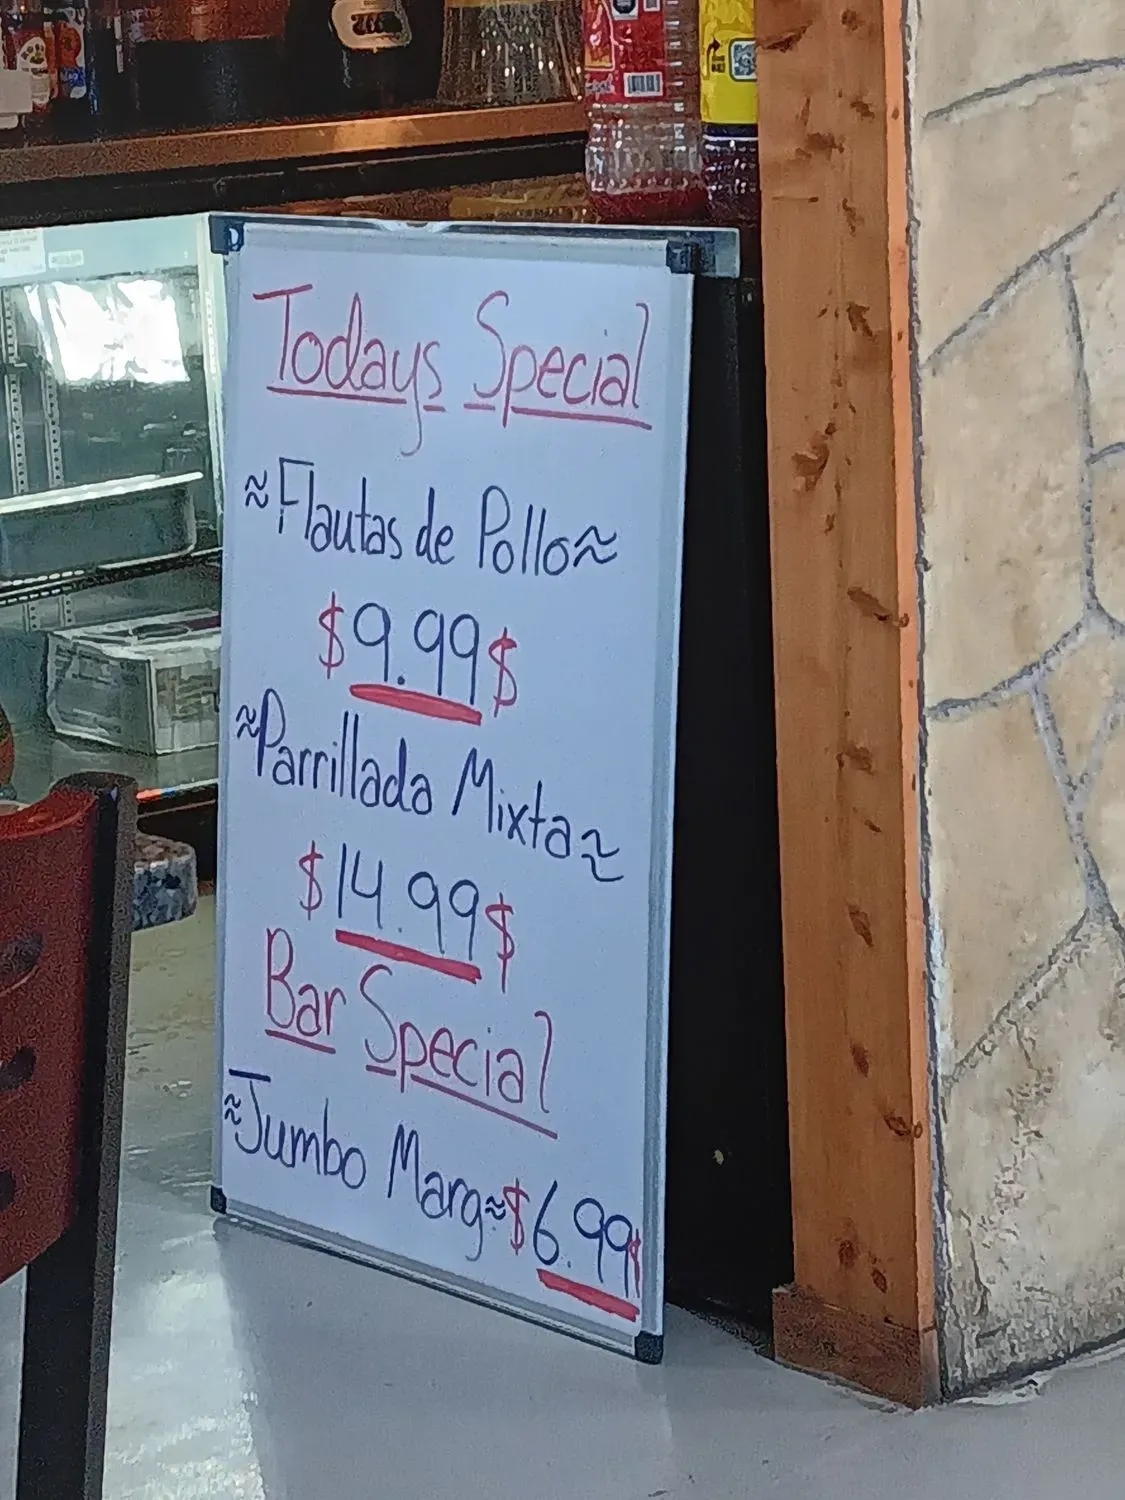 Todays Special
≈Flautas de Pollo≈
$9.99$
≈Parrillada Mixta≈
$14.99$
Bar Special
≈Jumbo Marg≈$6.99$